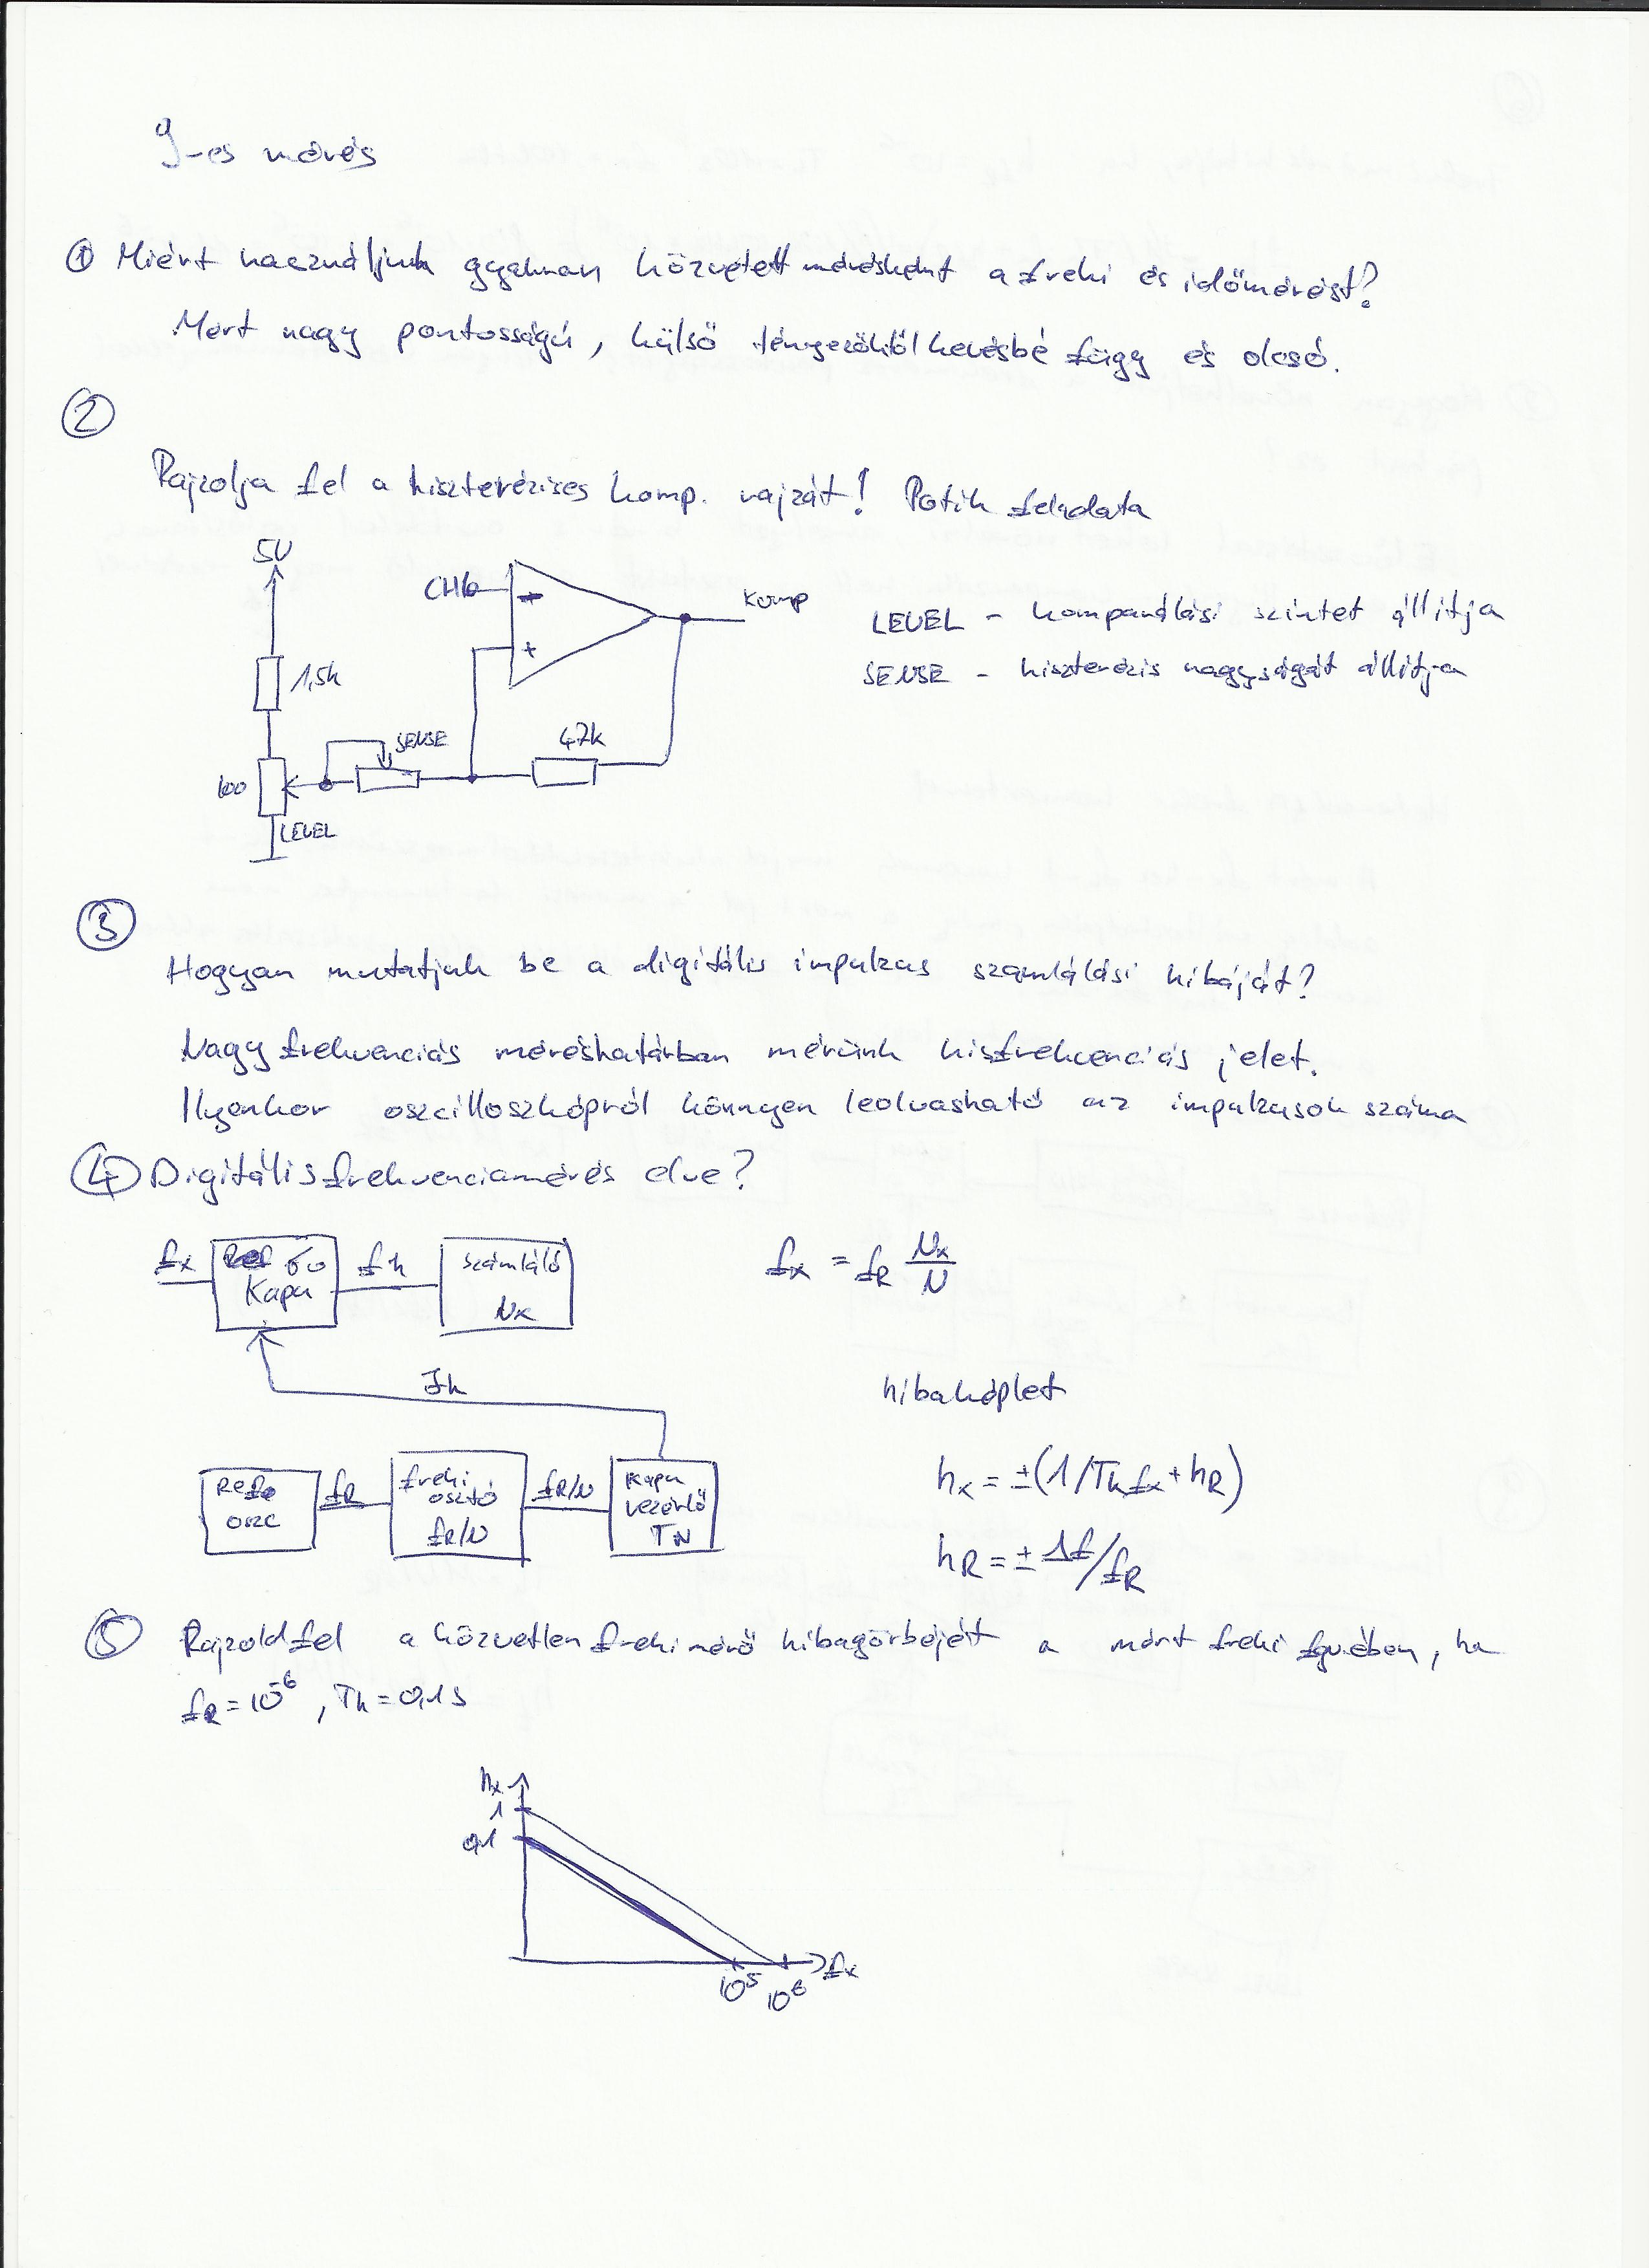 9-es mérés
① Miért használjuk gyakran közvetett mérésként a freki és időmérést?
Mert nagy pontosságú, külső tényezőktől kevésbé függ és olcsó.
②
Rajzolja fel a hiszterézises komp. rajzát! Potik feladata
5V
CH6
-
+
Komp
1,5k
SENSE
47k
100
LEVEL
LEVEL - komparálási szintet állítja
SENSE - hiszterézis nagyságát állítja
③
Hogyan mutatjuk be a digitális impulzus számlálási hibáját?
Nagyfrekvenciás méréshatárban mérünk kisfrekvenciás jelet.
Ilyenkor oszcilloszkópról könnyen leolvasható az impulzusok száma
④ Digitális frekvenciamérés elve?
fx
Kapu
számláló
Nx
fx = fR Nx/N
hibaképlet
osc
fR
freki
osztó
fR/N
fR/N
Kapu
vezérlő
TN
hx = ±(1/Tkfx + hR)
hR = ± Δf/fR
⑤ Rajzold fel a közvetlen frekimérő hibagörbéjét a mért freki fgvében, ha
fR = 10⁻⁶, Tk = 0,1s
hx
1
0,1
10⁵
10⁶
fx